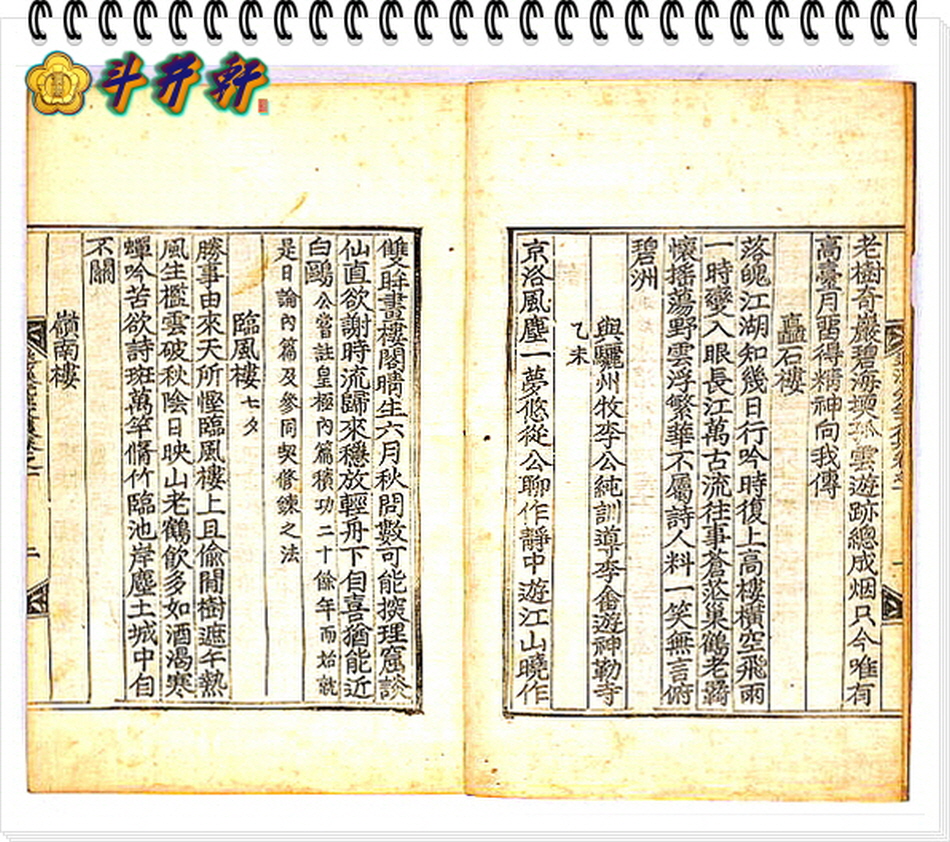 斗井軒
老樹奇巖碧海堧孤雲遊跡總成烟只今唯有
高臺月留得精神向我傳
矗石樓
落魄江湖知幾日行吟時復上高樓橫空飛雨
一時變入眼長江萬古流往事蒼茫巢鶴老羈
懷搖蕩野雲浮繁華不屬詩人料一笑無言俯
碧洲
與驪州牧李公純訓導李畬遊神勒寺
乙未
京洛風塵一夢悠從公聊作靜中遊江山曉作
雙眸畫樓閣晴生六月秋問數可能探理窟談
仙直欲謝時流歸來穩放輕舟下自喜猶能近
白鷗公嘗註皇極內篇積功二十餘年而始就
是日論內篇及參同契修鍊之法
臨風樓七夕
勝事由來天所慳臨風樓上且偸閒樹遮午熱
風生檻雲破秋陰日映山老鶴飮多如酒渴寒
蟬吟苦欲詩斑萬竿脩竹臨池岸塵土城中自
不關
嶺南樓